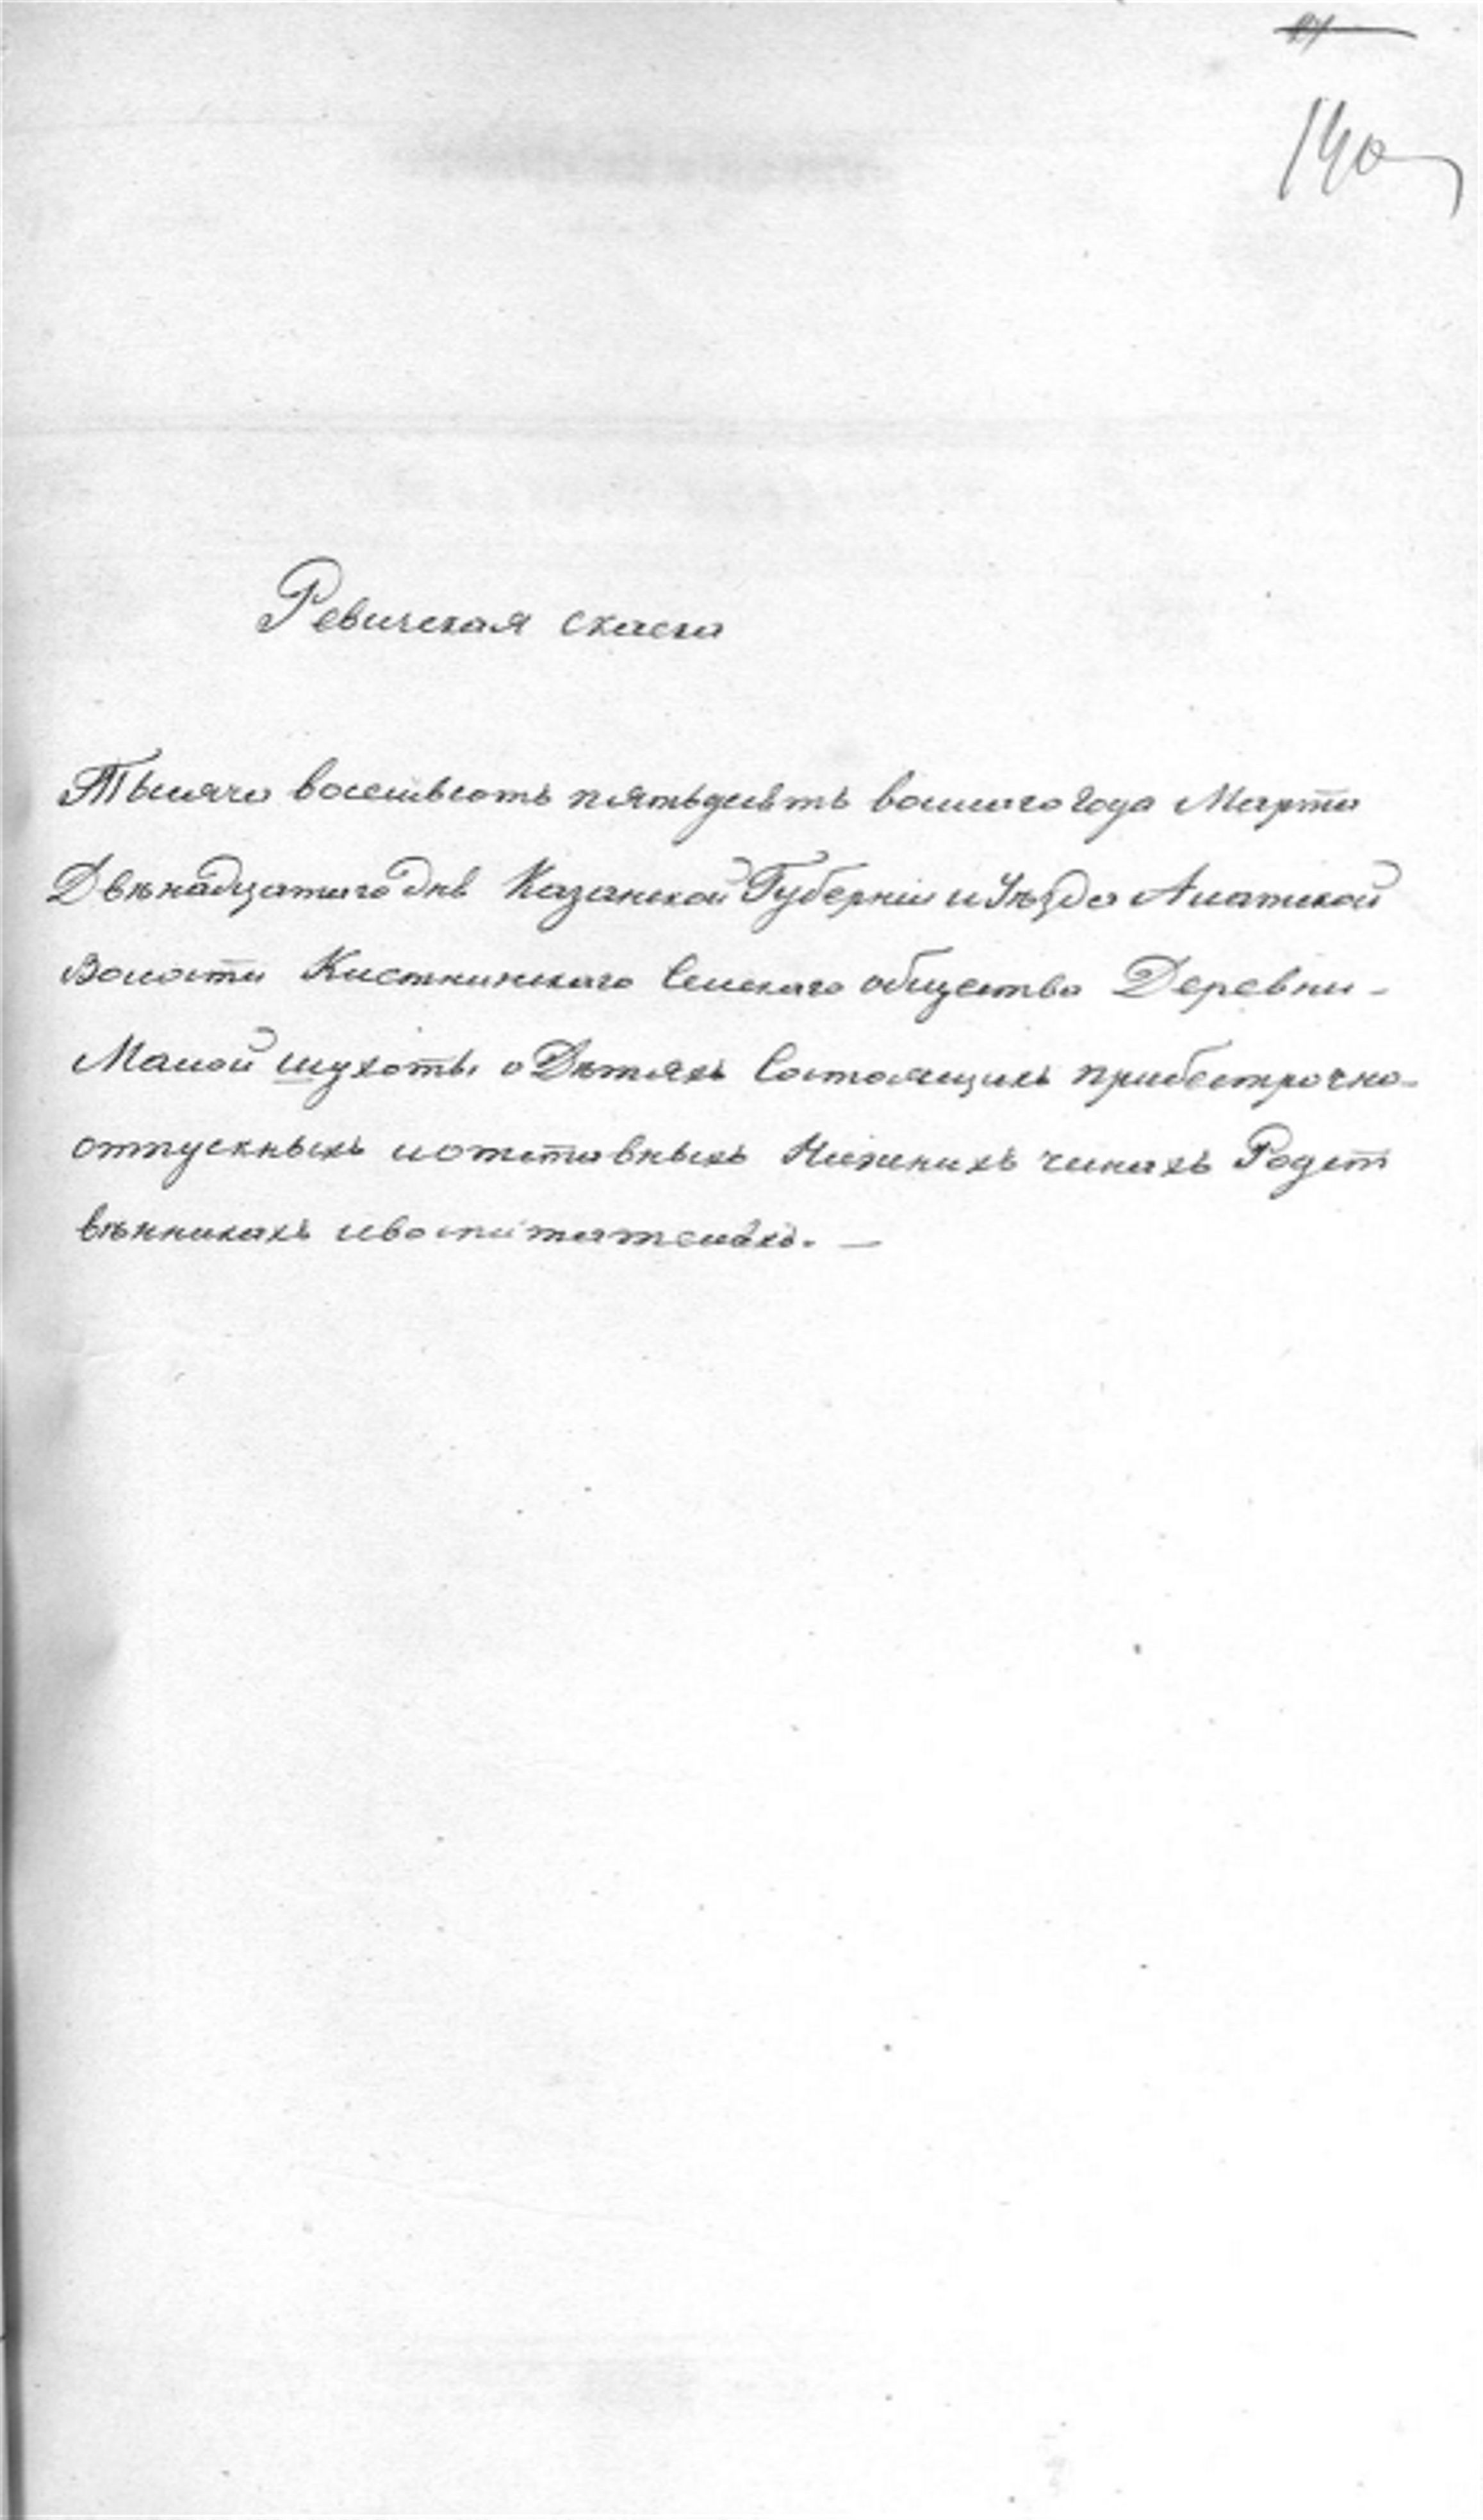 140
Ревиская скаска
Тысяча восемьсотъ пятьдесятъ восмаго года Марта
Двѣнадцатаго дня Казанской Губерніи и Уѣзда Алатской
Волости Кистнинскаго Селскаго общества Деревни -
Малой шухоты о Дѣтяхъ Состоящихъ прибестрочно-
отпускныхъ иотставныхъ Нижнихъ чинахъ Родст
вѣнникахъ ивоспитателяхъ. —